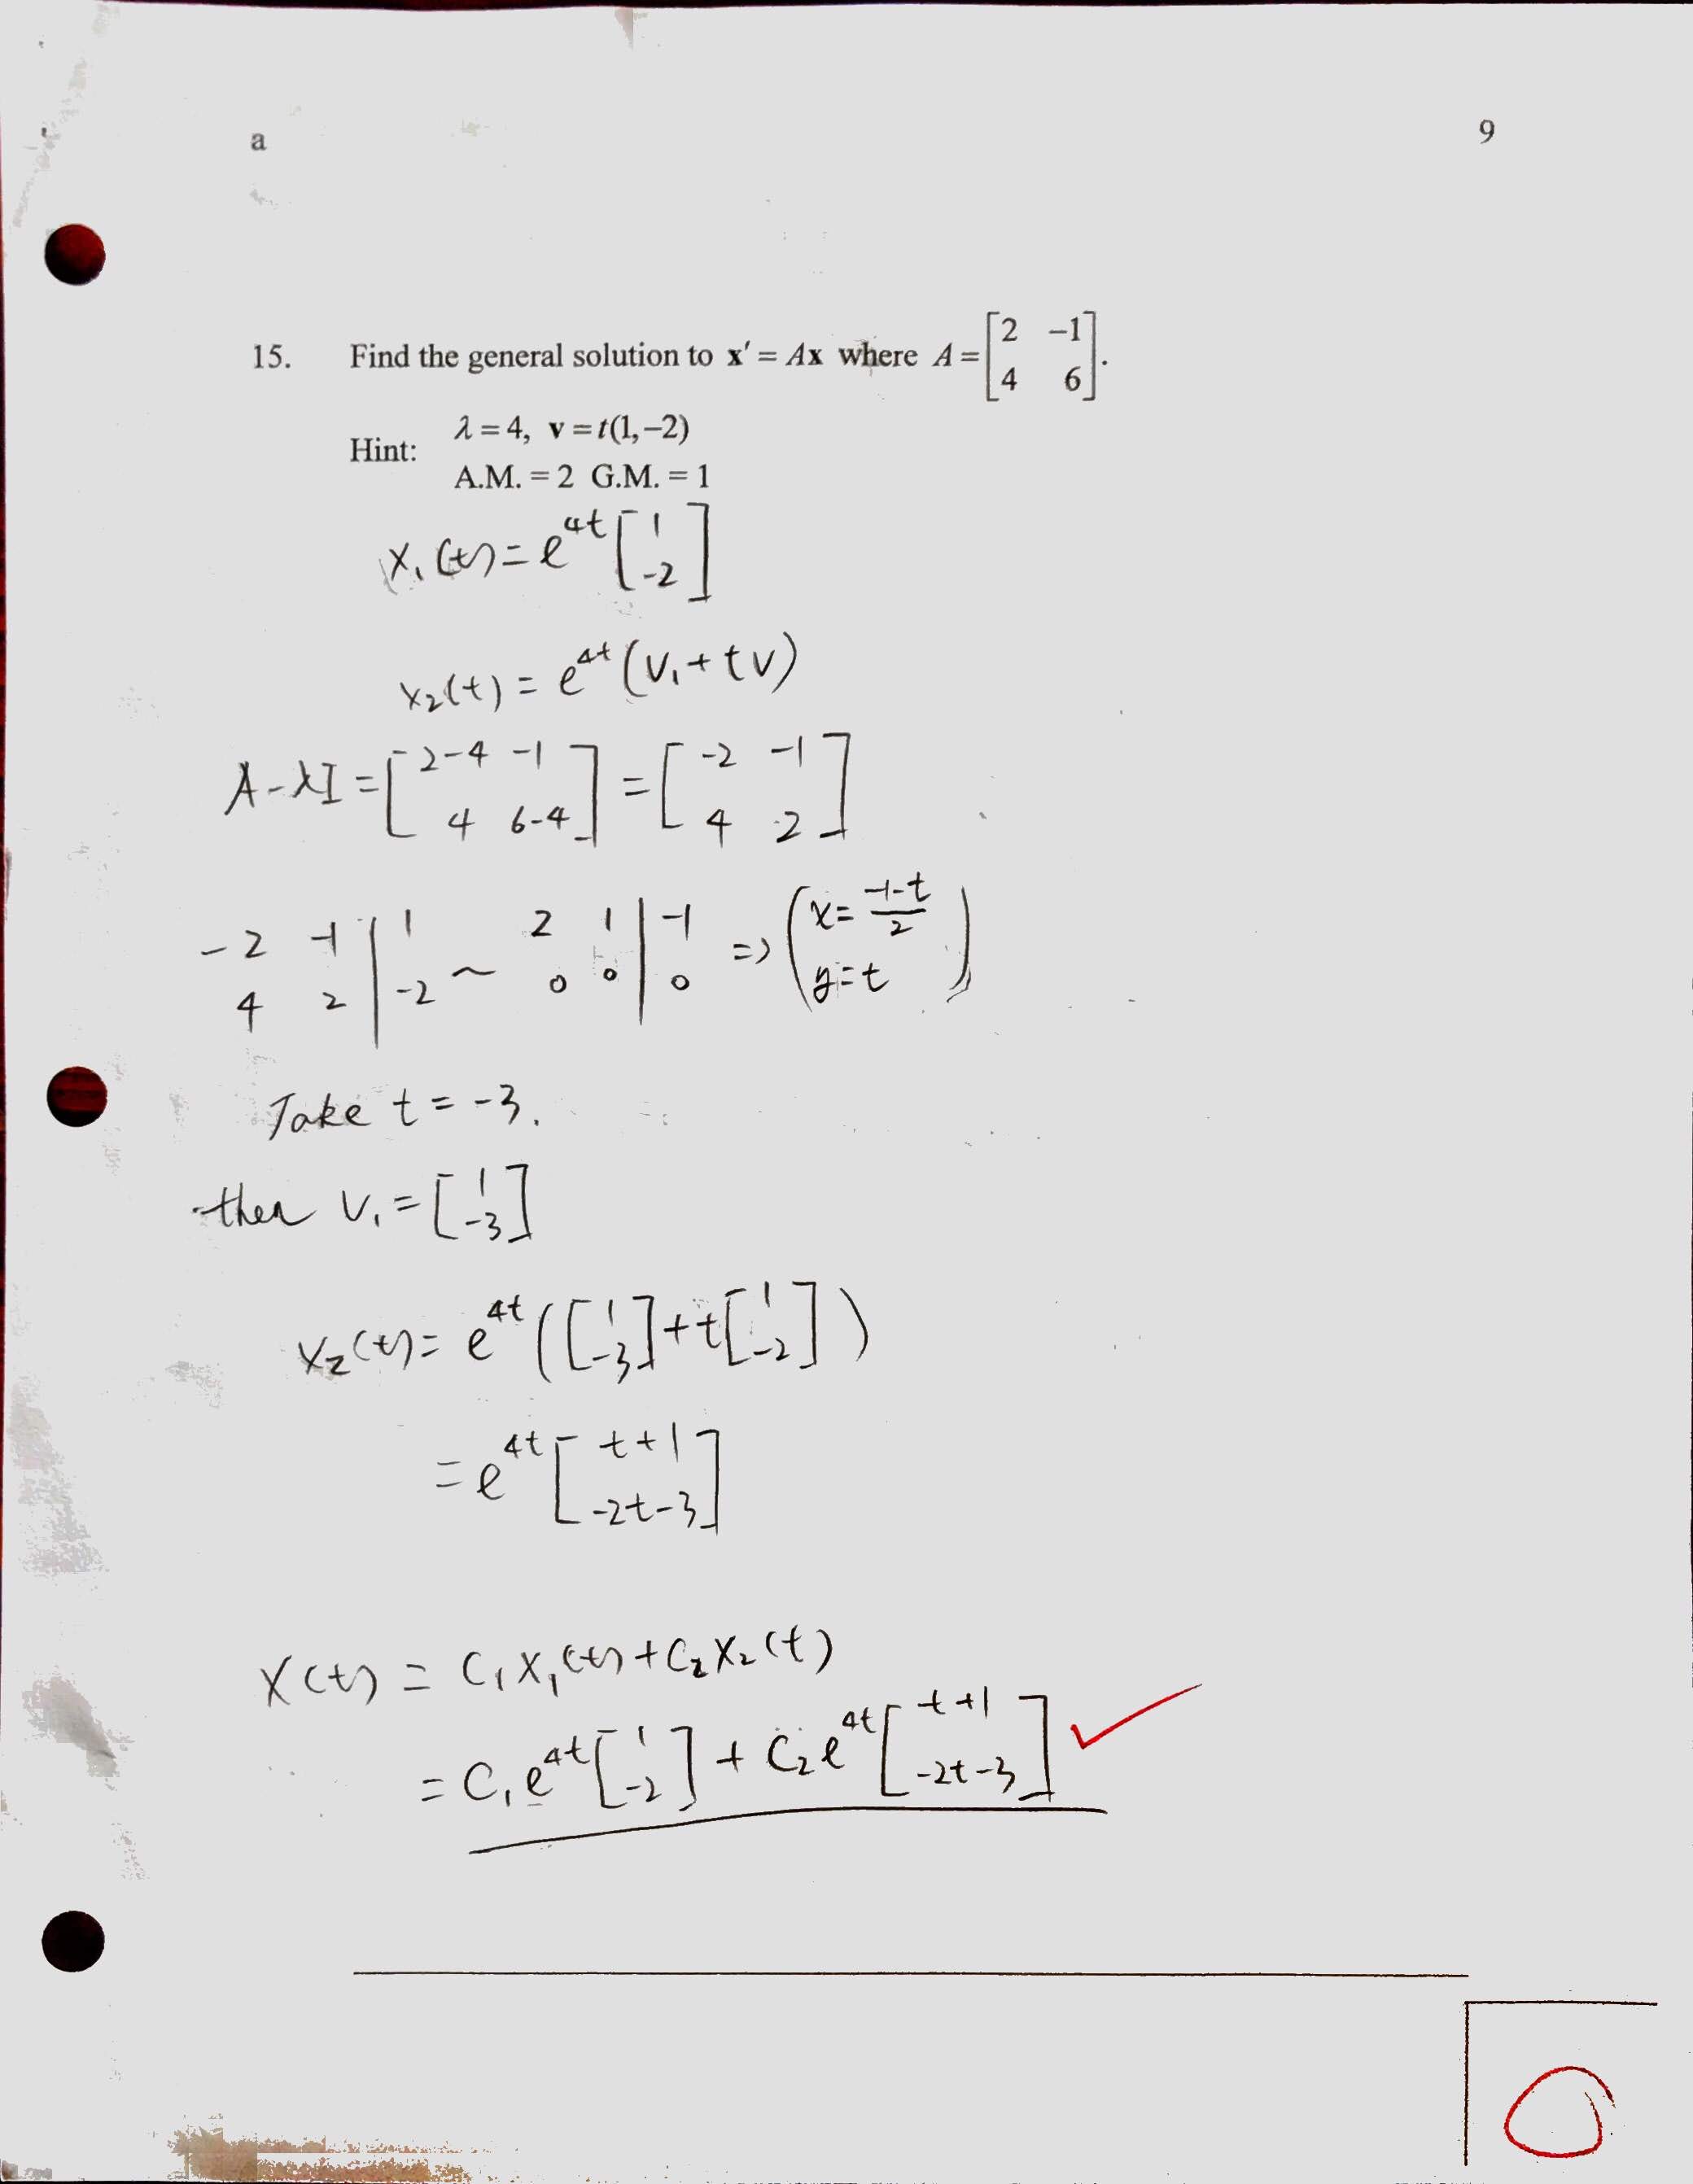 a
9
15. Find the general solution to x′ = Ax where A = [2 −1; 4 6].
Hint: λ = 4, v = t(1,−2)
A.M. = 2 G.M. = 1
X₁(t) = e^{4t} [1; -2]
X₂(t) = e^{4t} (V₁ + tV)
A-λI = [2-4 -1; 4 6-4] = [-2 -1; 4 2]
-2 -1 | 1 ~ 2 1 | -1 => (x = (-1-t)/2
4 2 | -2 0 0 | 0 y = t)
Take t = -3.
then V₁ = [1; -3]
X₂(t) = e^{4t} ([1; -3] + t[1; -2])
= e^{4t} [t+1; -2t-3]
X(t) = C₁X₁(t) + C₂X₂(t)
= C₁e^{4t} [1; -2] + C₂e^{4t} [t+1; -2t-3] ✓
0